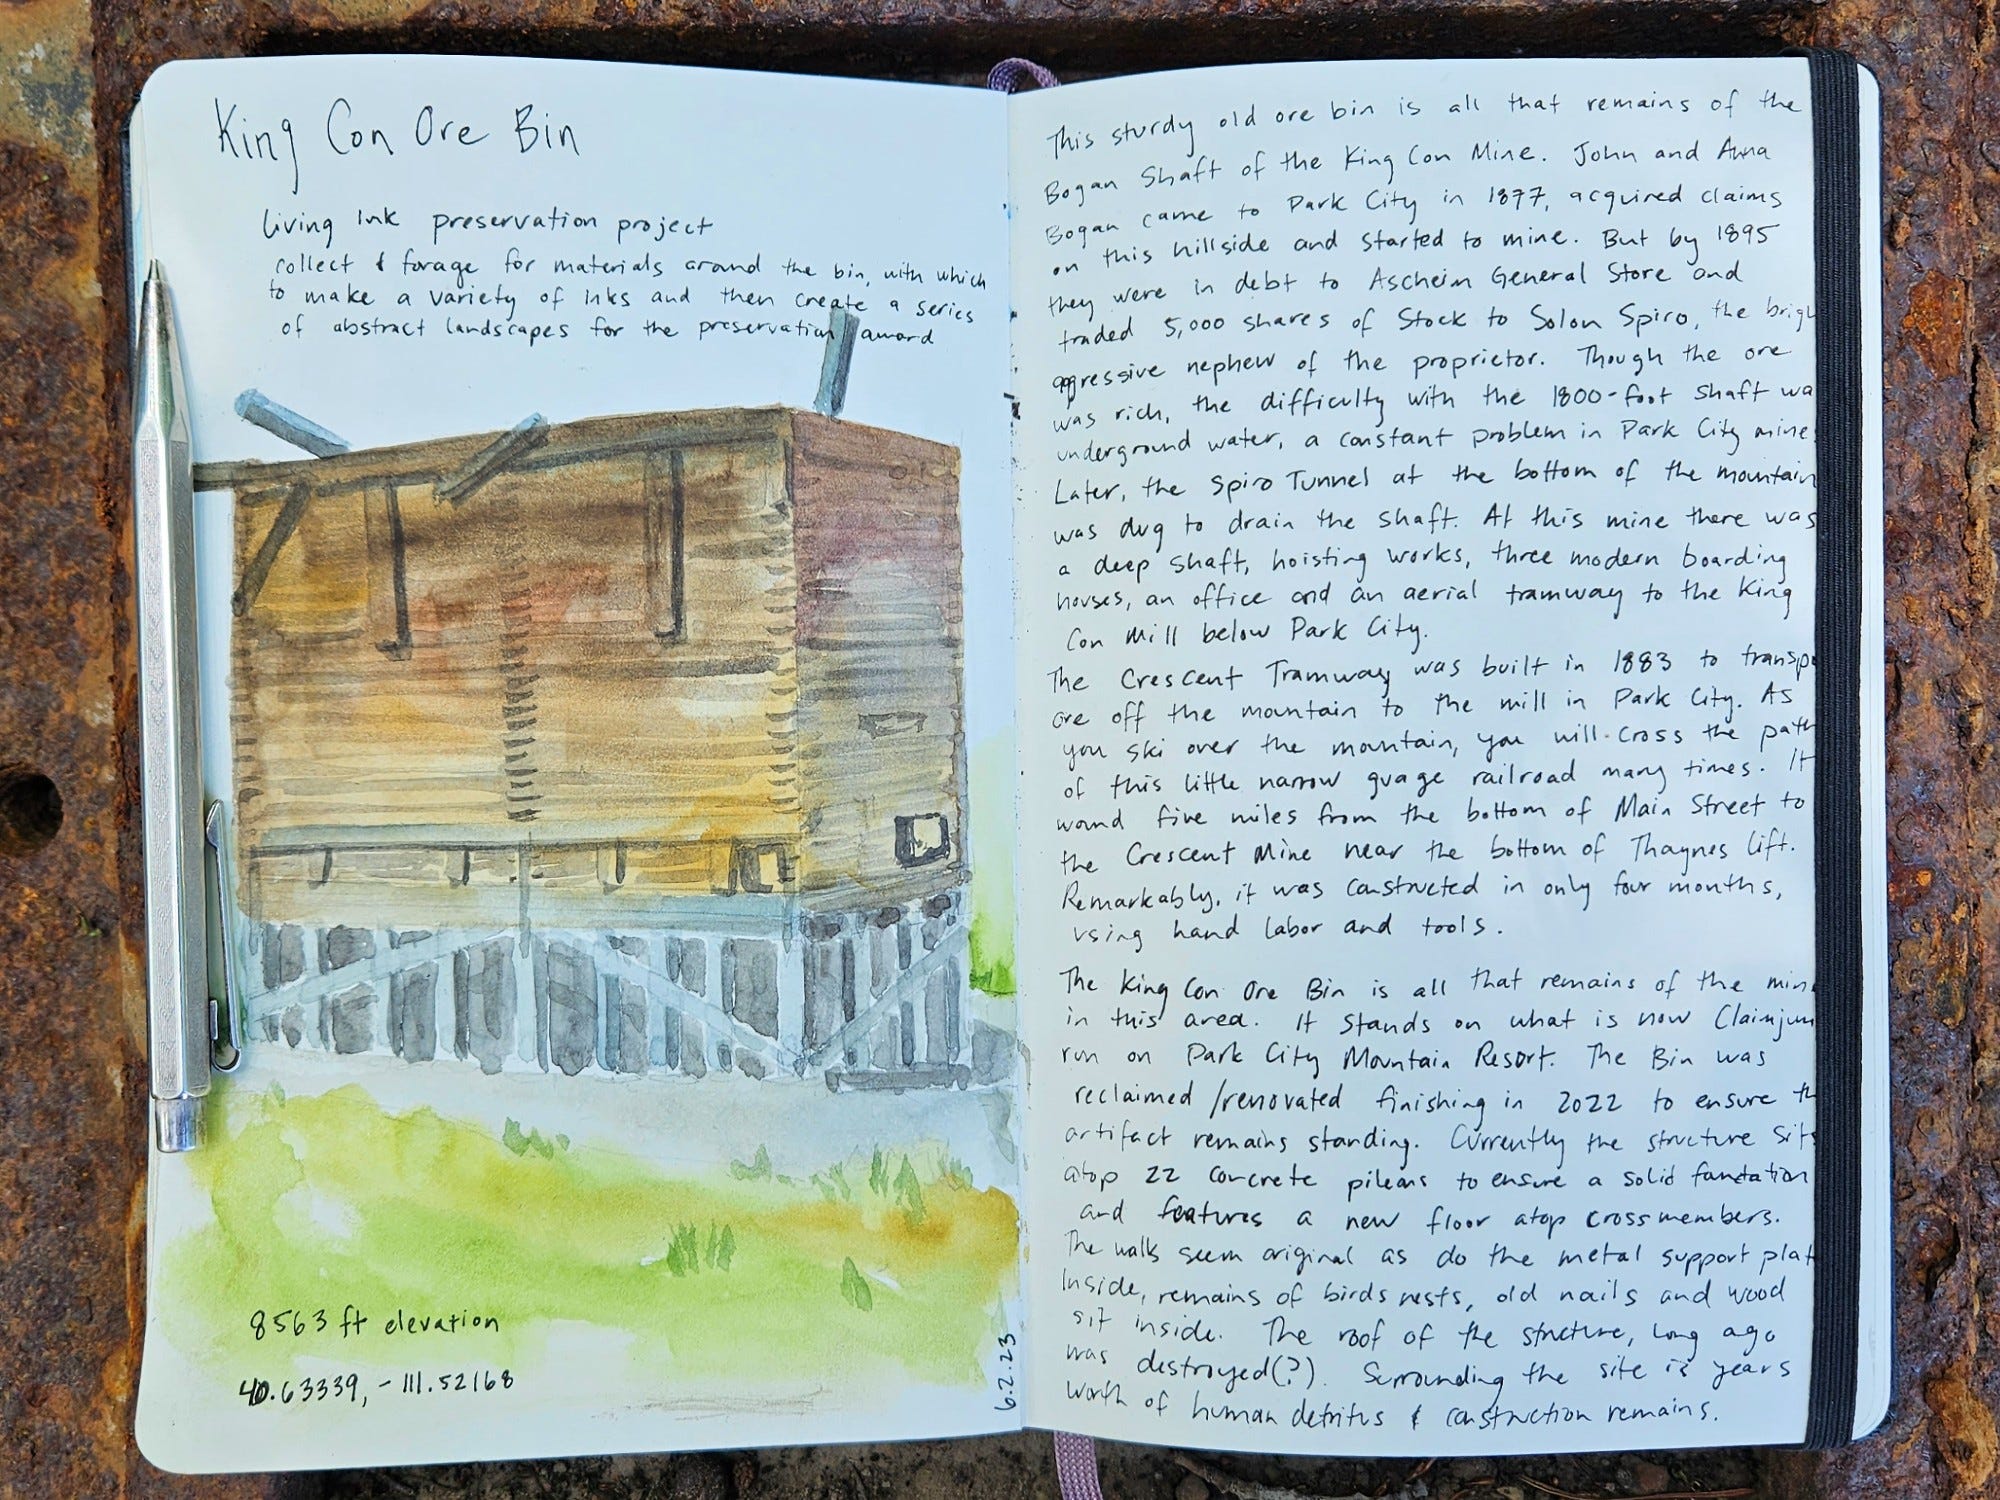 King Con Ore Bin
Living Ink preservation project
collect & forage for materials around the bin, with which
to make a variety of inks and then create a series
of abstract landscapes for the preservation award
8563 ft elevation
40.63339, -111.52168
6.2.23
This sturdy old ore bin is all that remains of the
Bogan Shaft of the King Con Mine. John and Anna
Bogan came to Park City in 1877, acquired claims
on this hillside and started to mine. But by 1895
they were in debt to Ascheim General Store and
traded 5,000 shares of Stock to Solon Spiro, the brigh
aggressive nephew of the proprietor. Though the ore
was rich, the difficulty with the 1800-foot shaft wa
underground water, a constant problem in Park City mine
Later, the Spiro Tunnel at the bottom of the mountain
was dug to drain the shaft. At this mine there was
a deep shaft, hoisting works, three modern boarding
houses, an office and an aerial tramway to the King
Con Mill below Park City.
The Crescent Tramway was built in 1883 to transpo
ore off the mountain to the mill in Park City. As
you ski over the mountain, you will cross the path
of this little narrow guage railroad many times. It
wound five miles from the bottom of Main Street to
the Crescent Mine near the bottom of Thaynes lift.
Remarkably, it was constructed in only four months,
using hand labor and tools.
The King Con Ore Bin is all that remains of the min
in this area. It stands on what is now Claimjum
run on Park City Mountain Resort. The Bin was
reclaimed/renovated finishing in 2022 to ensure th
artifact remains standing. Currently the structure sits
atop 22 concrete pileans to ensure a solid fandation
and features a new floor atop crossmembers.
The walls seem original as do the metal support plat
Inside, remains of birds nests, old nails and wood
sit inside. The roof of the structure, long ago
was destroyed(?). Surrounding the site is years
worth of human detritus & construction remains.